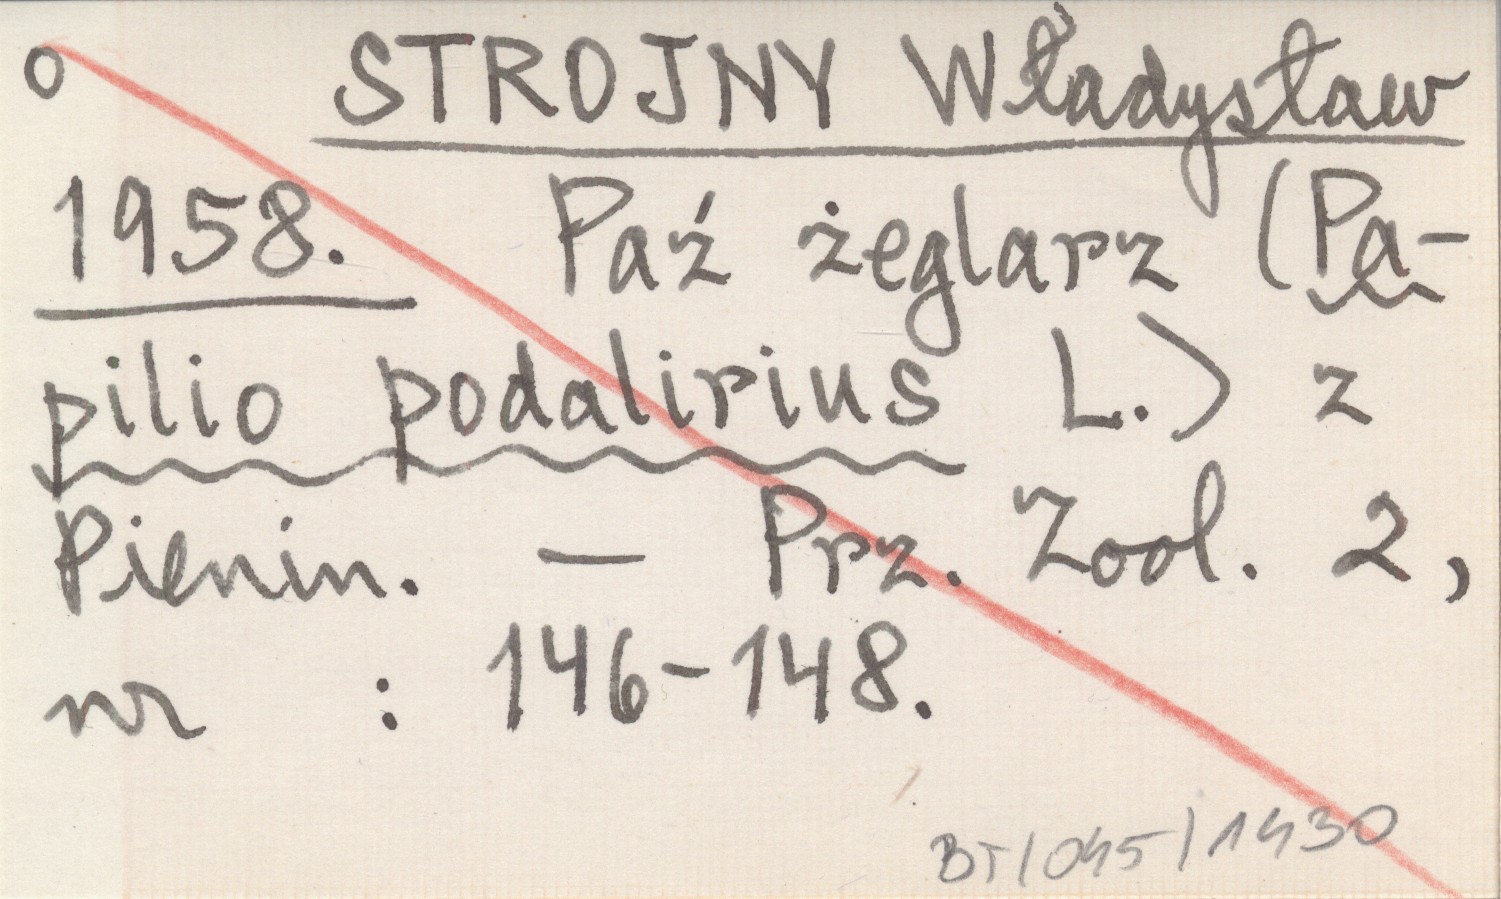 o STROJNY Władysław
1958. Paź żeglarz (Pa-
pilio podalirius L.) z
Pienin. — Prz. Zool. 2,
nr : 146-148.
BT/045/1430